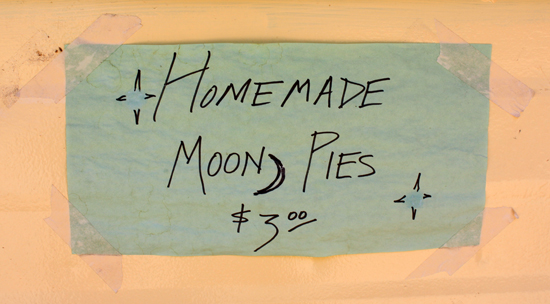 HOMEMADE
MOON PIES
$3.00